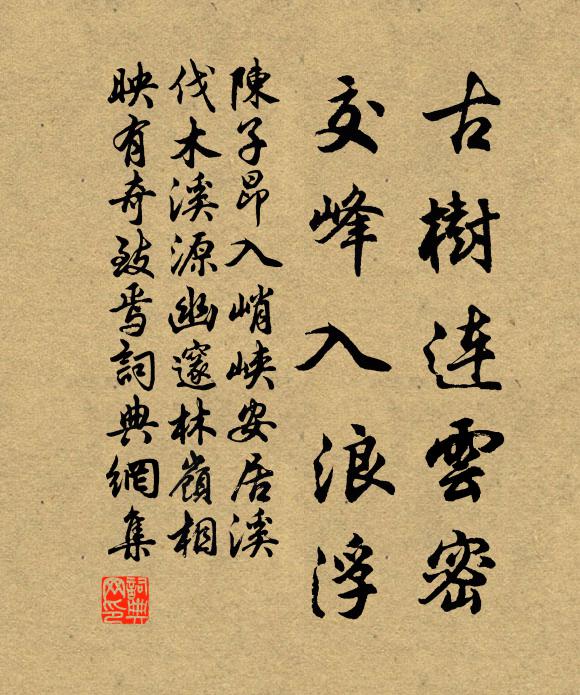 古樹連雲密
交峰入浪浮
陳子昂入峭峽安居溪
伐木溪源幽邃林嶺相
映有奇致焉詞典網集
詞典
网印